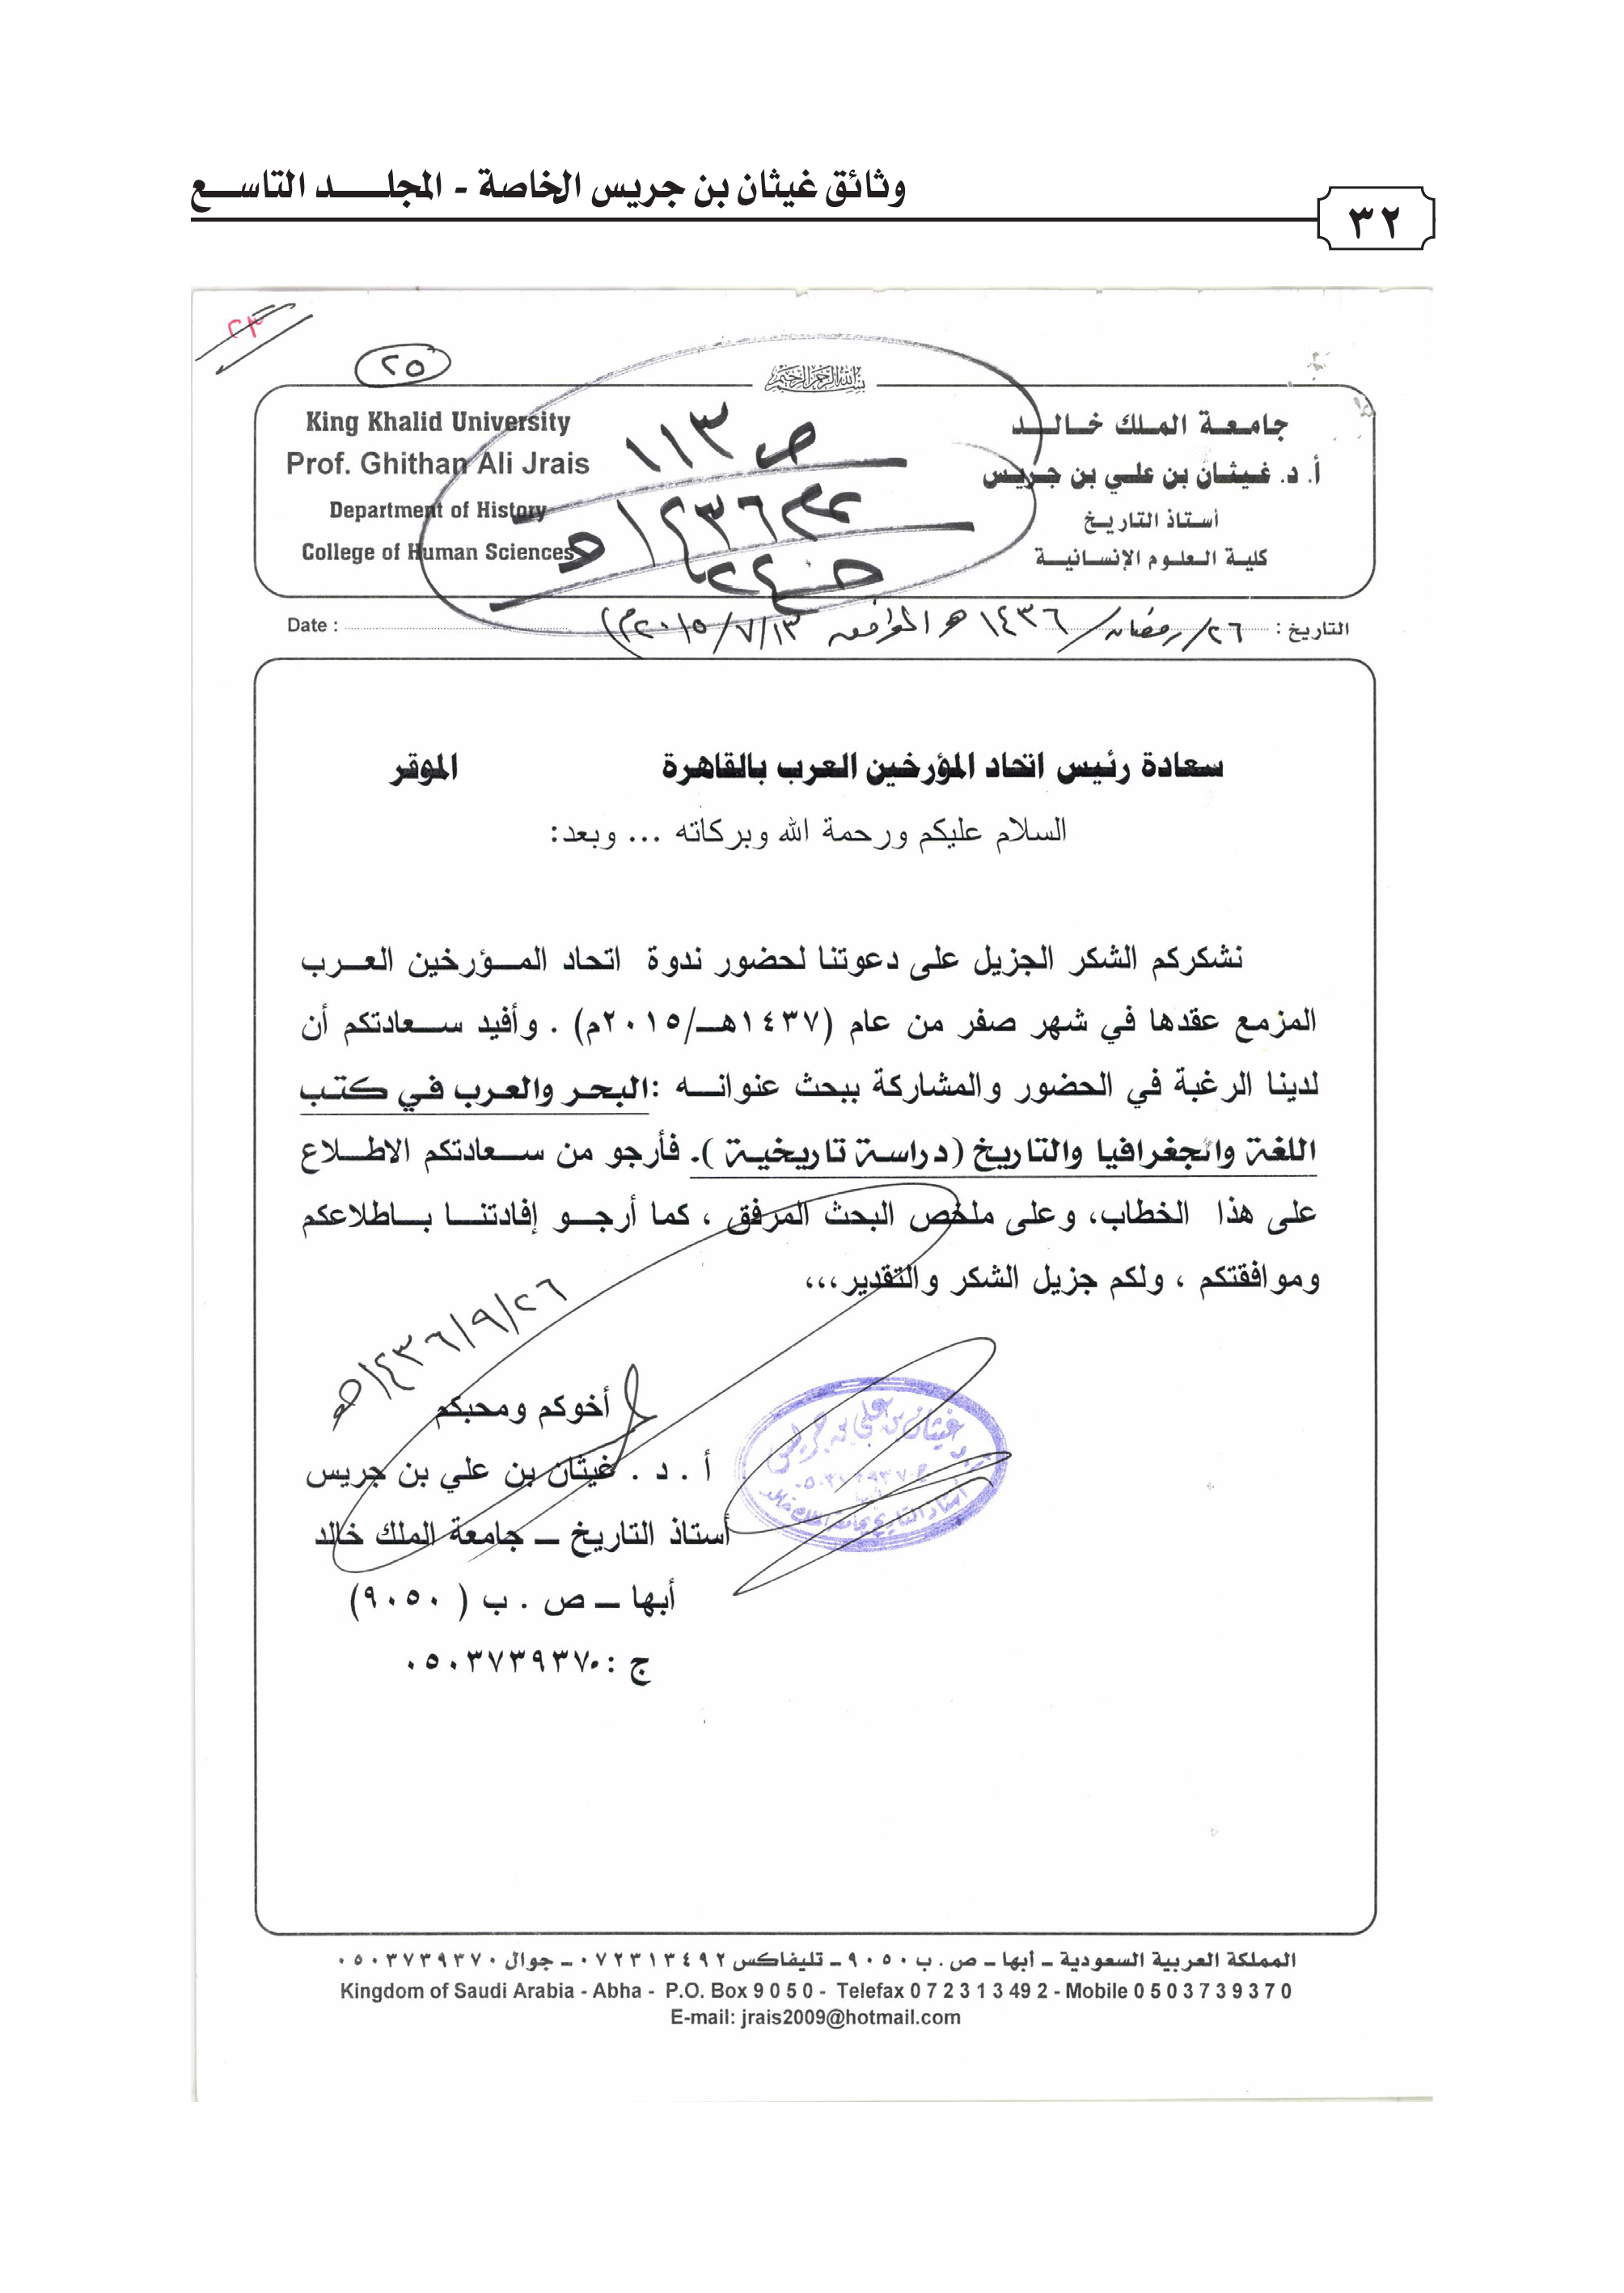 وثائق غيثان بن جريس الخاصة - المجلـــد التاســـع
٣٢
٢٣
٢٥
بسم الله الرحمن الرحيم
King Khalid University
Prof. Ghithan Ali Jrais
Department of History
College of Human Sciences
جامعة الملك خالد
أ. د. غيثان بن علي بن جريس
أستاذ التاريخ
كلية العلوم الإنسانية
ص ١١٣
١٤٣٦هـ
Date :
التاريخ : ٢٦/رمضان/١٤٣٦هـ الموافق ١٣/٧/٢٠١٥م)
سعادة رئيس اتحاد المؤرخين العرب بالقاهرة الموقر
السلام عليكم ورحمة الله وبركاته ... وبعد:
نشكركم الشكر الجزيل على دعوتنا لحضور ندوة اتحاد المؤرخين العرب
المزمع عقدها في شهر صفر من عام (١٤٣٧هـ/٢٠١٥م) . وأفيد سعادتكم أن
لدينا الرغبة في الحضور والمشاركة ببحث عنوانه :البحر والعرب في كتب
اللغة والجغرافيا والتاريخ (دراسة تاريخية ). فأرجو من سعادتكم الاطلاع
على هذا الخطاب، وعلى ملخص البحث المرفق ، كما أرجو إفادتنا باطلاعكم
وموافقتكم ، ولكم جزيل الشكر والتقدير،،،
٢٦/٩/١٤٣٦هـ
أخوكم ومحبكم
أ . د . غيثان بن علي بن جريس
أستاذ التاريخ ــ جامعة الملك خالد
أبها ــ ص . ب ( ٩٠٥٠)
ج :٠٥٠٣٧٣٩٣٧٠
أ.د غيثان بن علي بن جريس
أستاذ التاريخ بجامعة الملك خالد
المملكة العربية السعودية ــ أبها ــ ص . ب ٩٠٥٠ ــ تليفاكس ٠٧٢٣١٣٤٩٢ ــ جوال ٠٥٠٣٧٣٩٣٧٠
Kingdom of Saudi Arabia - Abha - P.O. Box 9 0 5 0 - Telefax 0 7 2 3 1 3 49 2 - Mobile 0 5 0 3 7 3 9 3 7 0
E-mail: jrais2009@hotmail.com